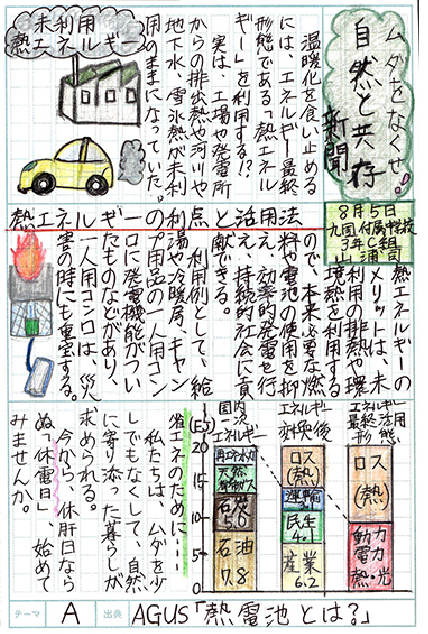 ムダをなくせ!
自然と共存
新聞
8月5日
3年C組
未利用
熱エネルギー
温暖化を食い止める
には、エネルギー最終
形態である「熱エネル
ギー」を利用する!?
実は、工場や発電所
からの排出熱や河川や
地下水、雪氷熱が未利
用のままになっていた。
熱エネルギーの
メリットは、未
利用の排熱や環
境熱を利用する
ので、本来必要な燃
料や電池の使用を抑
え、効率的発電を行
え、持続的社会に貢
献できる。
熱エネルギー利用点活用法
利用例として、給
湯や冷暖房、キャン
プ用品の一人用コン
ロに発電機能がつい
たものなどがあり、
一人用コンロは、災
害の時にも重宝する。
省エネのために…
私たちは、ムダを少
しでもなくして、自然
に寄り添った暮らしが
求められる。
今から、休肝日なら
ぬ「休電日」、始めて
みませんか。
(EJ)
20
15
10
5
0
国内一次
エネルギー
天然
石炭
5.0
石油
7.8
エネルギー
変換後
ロス
(熱)
運輸
民生
4.1
産業
6.2
エネルギー
最終
ロス
(熱)
動力
電力
熱・光
テーマ
A
出典
AGUS「熱電池とは?」